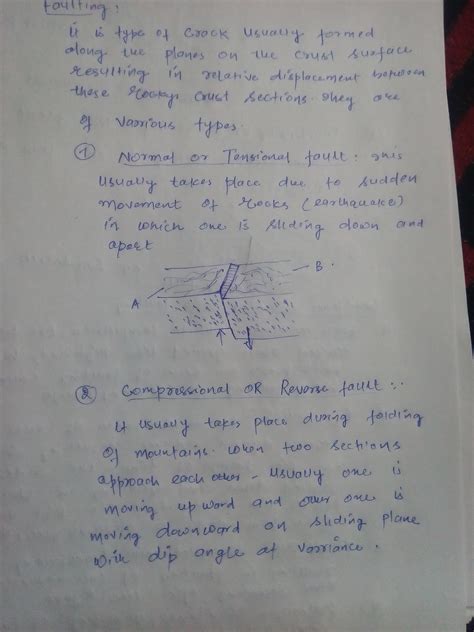 Faulting:
It is type of Crack usually formed
along the planes on the crust surface
resulting in relative displacement between
these rocky crust sections. They are
of varrious types.
① Normal or Tensional fault: This
usually takes place due to sudden
movement of rocks (earthquake)
in which one is sliding down and
apart
A
B.
② Compressional OR Reverse fault :.
It usually takes place during folding
of mountains. when two sections
approach each other - usually one is
moving upward and other one is
moving downward on sliding plane
with dip angle at varriance.